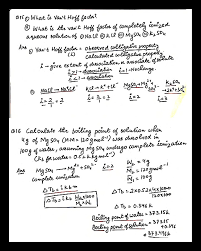 Q15 ① What is Van't Hoff factor?
② What is the van't Hoff factor of completely ionized
aqueous solution of ① NaCl ② KCl ③ MgSO₄ ④ K₂SO₄
Ans ① Van't Hoff factor = observed colligative property
calculated colligative property
i - give extent of dissociation or associate of solute
i>1 → dissociation
i<1 → association
i=1 → No change
② NaCl → Na⁺Cl⁻
i = 2
KCl → K⁺+Cl⁻
i = 2
MgSO₄ → Mg²⁺+SO₄²⁻
i = 2
K₂SO₄
→ 2K⁺+SO₄²⁻
i = 3
Q16 Calculate the boiling point of solution when
4g of MgSO₄ (M.M = 120 gmol⁻¹) was dissolved in
100g of water, assuming MgSO₄ undergo complete ionization
(Kb for water = 0.52 K kg mol⁻¹)
Ans MgSO₄ → Mg²⁺+SO₄²⁻
complete ionization i = 2
W₂ = 4g
M₂ = 120g
W₁ = 100g
ΔTb = i Kb m
ΔTb = 0.346 K
Boiling point of water = 373.15K
Boiling point of solution